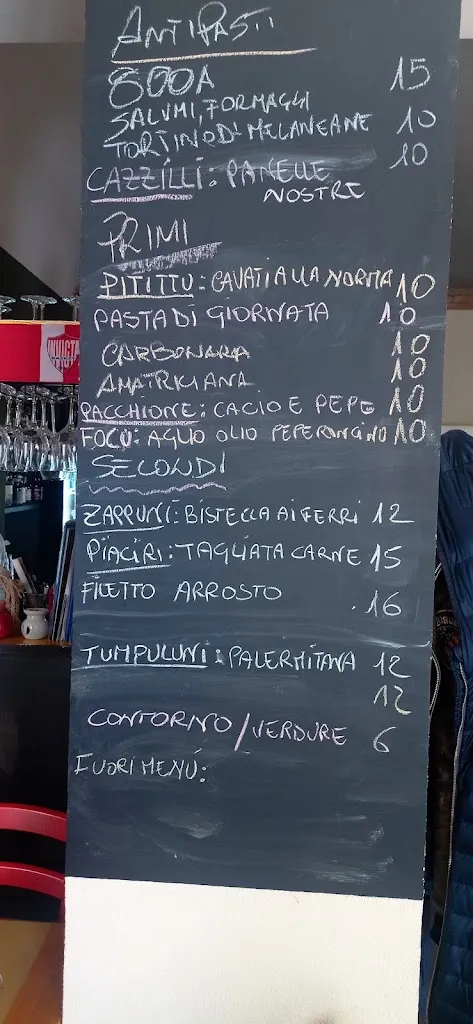 ANTIPASTI
800A 15
SALUMI, FORMAGGI
TORTINO DI MELANZANE 10
CAZZILLI: PANELLE 10
NOSTRE
PRIMI
PITITTU: CAVATI ALLA NORMA 10
PASTA DI GIORNATA 10
CARBONARA 10
AMATRICIANA 10
PACCHIONE: CACIO E PEPE 10
FOCU: AGLIO OLIO PEPERONCINO 10
SECONDI
ZAPPUNI: BISTECCA AI FERRI 12
PIACIRI: TAGLIATA CARNE 15
FILETTO ARROSTO 16
TUMPULUNI: PALERMITANA 12
12
CONTORNO/VERDURE 6
FUORI MENÚ:
INVICTA